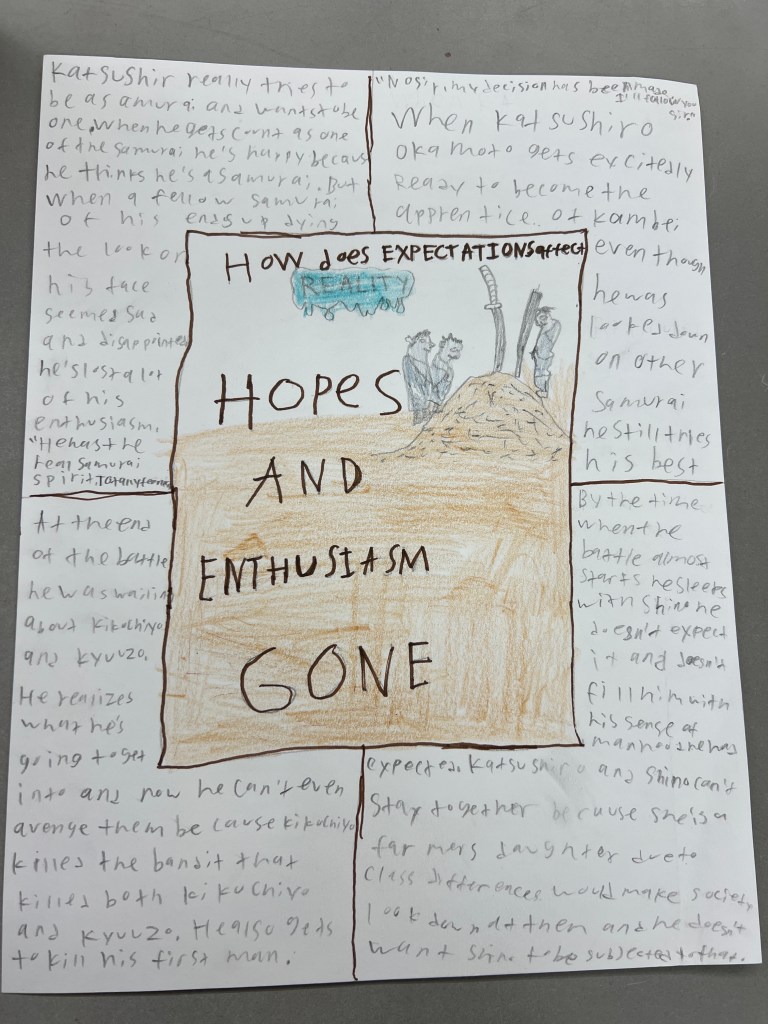 Katsushir really tries to
be a samurai and wants to be
one. When he gets count as one
of the samurai he's happy becaus
he thinks he's a samurai. But
when a fellow samurai
of his ends up dying
the look on
his face
seemed sad
and disappointed
he's lost a lot
of his
enthusiasm.
"He has the
real samurai
spirit.
"No sir, my decision has been made
I'll follow you
sir."
When Katsushiro
okamoto gets excitedly
Ready to become the
apprentice of Kambei
even though
he was
looked down
on other
Samurai
he still tries
his best
HOW does EXPECTATIONS affect
REALITY
HOPES
AND
ENTHUSIASM
GONE
At the end
of the battle
he was wailin
about Kikuchiyo
and Kyuuzo.
He realizes
what he's
going to get
into and now he can't even
avenge them be cause Kikuchiyo
killed the bandit that
killed both kikuchiyo
and Kyuuzo. He also gets
to kill his first man.
By the time
when the
battle almost
starts he sleeps
with Shino he
doesn't expect
it and doesn't
fill him with
his sense of
manhood he has
expected. Katsushiro and Shino can't
Stay together because she's a
farmers daughter due to
class differences would make society
look down at them and he doesn't
want Shino to be subjected to that.